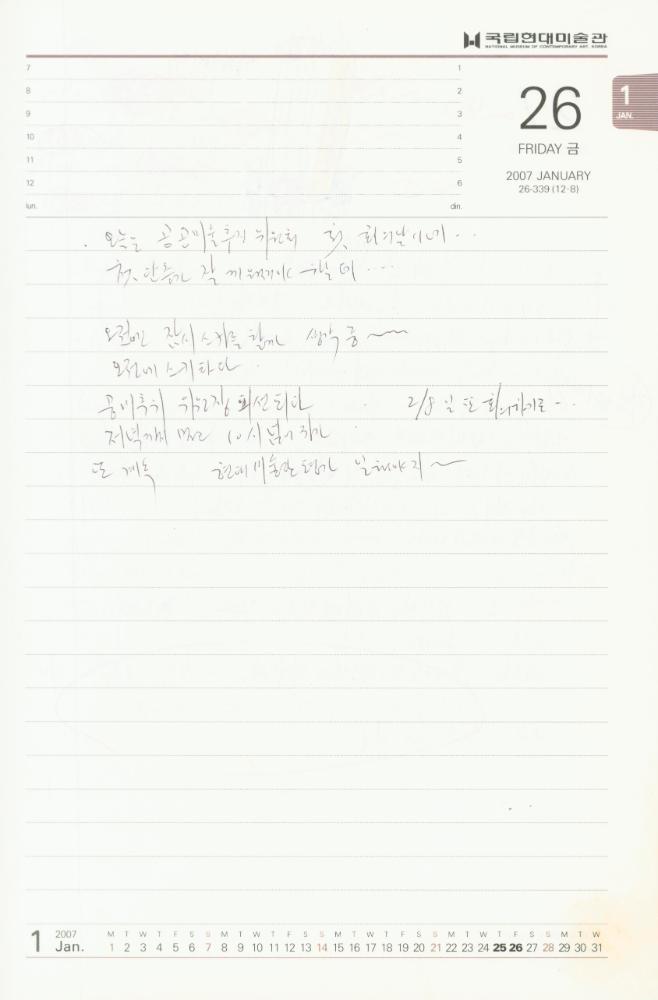 국립현대미술관
NATIONAL MUSEUM OF CONTEMPORARY ART, KOREA
7 1
8 2
9 3
10 4
11 5
12 6
lun. din.
26
FRIDAY 금
2007 JANUARY
26-339 (12·8)
1
JAN.
. 오늘은 공공미술추진위원회 첫 회의날이네..
첫 단추가 잘 끼워져야 할 데...
오전에 잠시 스키를 할까 생각 중~~
오전에 스키타다.
공미추위 위원장 피선되다. 2/8일 또 회의하기로...
저녁까지 먹고 10시 넘어 귀가.
또 계속 현대미술관 평가 일 해야지~
1 2007 Jan.
M T W T F S S M T W T F S S M T W T F S S M T W T F S S M T W
1 2 3 4 5 6 7 8 9 10 11 12 13 14 15 16 17 18 19 20 21 22 23 24 25 26 27 28 29 30 31